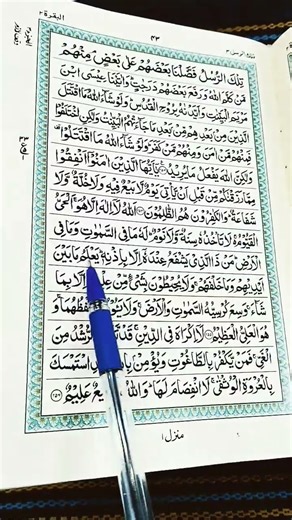 البقرة ٢
٤٣
تلك الرسل ٣
تِلْكَ الرُّسُلُ فَضَّلْنَا بَعْضَهُمْ عَلٰى بَعْضٍ مِنْهُمْ
مَّنْ كَلَّمَ اللّٰهُ وَرَفَعَ بَعْضَهُمْ دَرَجٰتٍ وَاٰتَيْنَا عِيْسَى ابْنَ
مَرْيَمَ الْبَيِّنٰتِ وَاَيَّدْنٰهُ بِرُوْحِ الْقُدُسِ وَلَوْ شَآءَ اللّٰهُ مَا اقْتَتَلَ
الَّذِيْنَ مِنْۢ بَعْدِهِمْ مِّنْۢ بَعْدِ مَا جَآءَتْهُمُ الْبَيِّنٰتُ وَلٰكِنِ اخْتَلَفُوْا
فَمِنْهُمْ مَّنْ اٰمَنَ وَمِنْهُمْ مَّنْ كَفَرَ وَلَوْ شَآءَ اللّٰهُ مَا اقْتَتَلُوْا
وَلٰكِنَّ اللّٰهَ يَفْعَلُ مَا يُرِيْدُ يٰٓاَيُّهَا الَّذِيْنَ اٰمَنُوْٓا اَنْفِقُوْا
مِمَّا رَزَقْنٰكُمْ مِّنْ قَبْلِ اَنْ يَّاْتِيَ يَوْمٌ لَّا بَيْعٌ فِيْهِ وَلَا خُلَّةٌ وَّلَا
شَفَاعَةٌ وَالْكٰفِرُوْنَ هُمُ الظّٰلِمُوْنَ اَللّٰهُ لَآ اِلٰهَ اِلَّا هُوَ اَلْحَيُّ
الْقَيُّوْمُ لَا تَاْخُذُهٗ سِنَةٌ وَّلَا نَوْمٌ لَهٗ مَا فِي السَّمٰوٰتِ وَمَا فِي
الْاَرْضِ مَنْ ذَا الَّذِيْ يَشْفَعُ عِنْدَهٗٓ اِلَّا بِاِذْنِهٖ يَعْلَمُ مَا بَيْنَ
اَيْدِيْهِمْ وَمَا خَلْفَهُمْ وَلَا يُحِيْطُوْنَ بِشَيْءٍ مِّنْ اِلَّا بِمَا
شَآءَ وَسِعَ كُرْسِيُّهُ السَّمٰوٰتِ وَالْاَرْضَ وَلَا حِفْظُهُمَا وَ
هُوَ الْعَلِيُّ الْعَظِيْمُ لَآ اِكْرَاهَ فِي الدِّيْنِ قَدْ الرُّشْدُ مِنَ
الْغَيِّ فَمَنْ يَّكْفُرْ بِالطَّاغُوْتِ وَيُؤْمِنْ اسْتَمْسَكَ
بِالْعُرْوَةِ الْوُثْقٰى لَا انْفِصَامَ لَهَا وَاللّٰهُ عَلِيْمٌ ٢٥٦
منزل ١